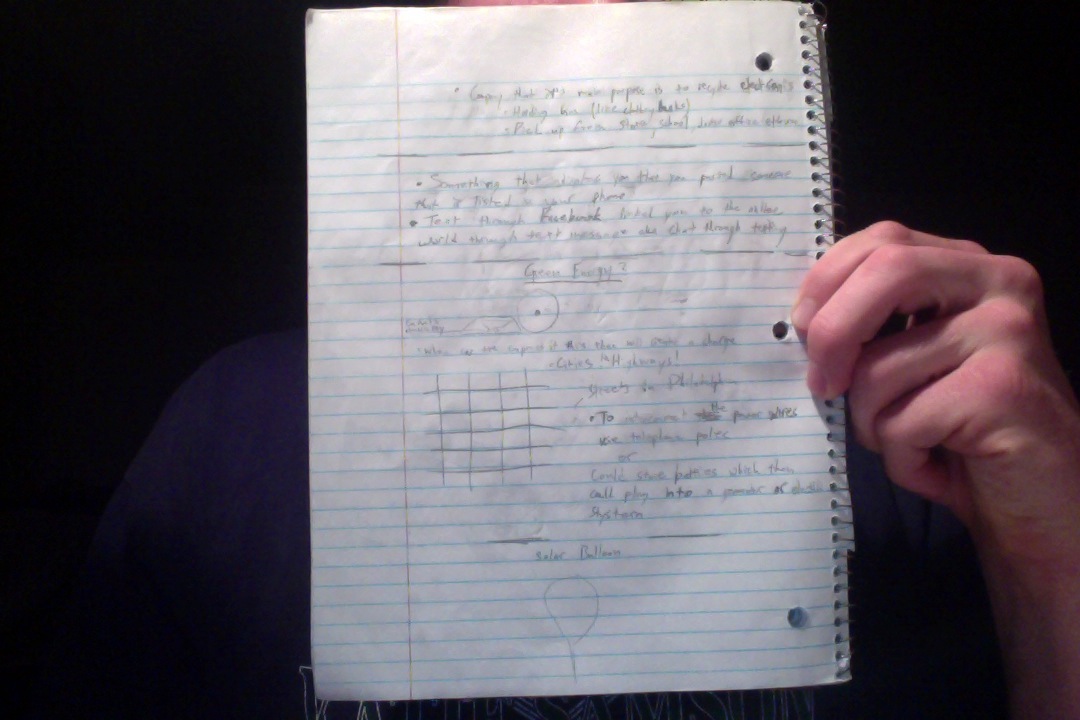 • Company that it's main purpose is to recycle electronics
- Holding bin (like clothing banks)
- Pick up from Stores, school,
• Something that you then
that is listed in your phone
• Text through Facebook linked you to the other
world through text message aka chat through texting
Green Energy?
• When car this then will create a charge
- Cities Highways!
Streets in Philadelphia
• To the power wires
use telephone poles
or
Could store batteries which then
could plug into a generator or
System
Solar Balloon